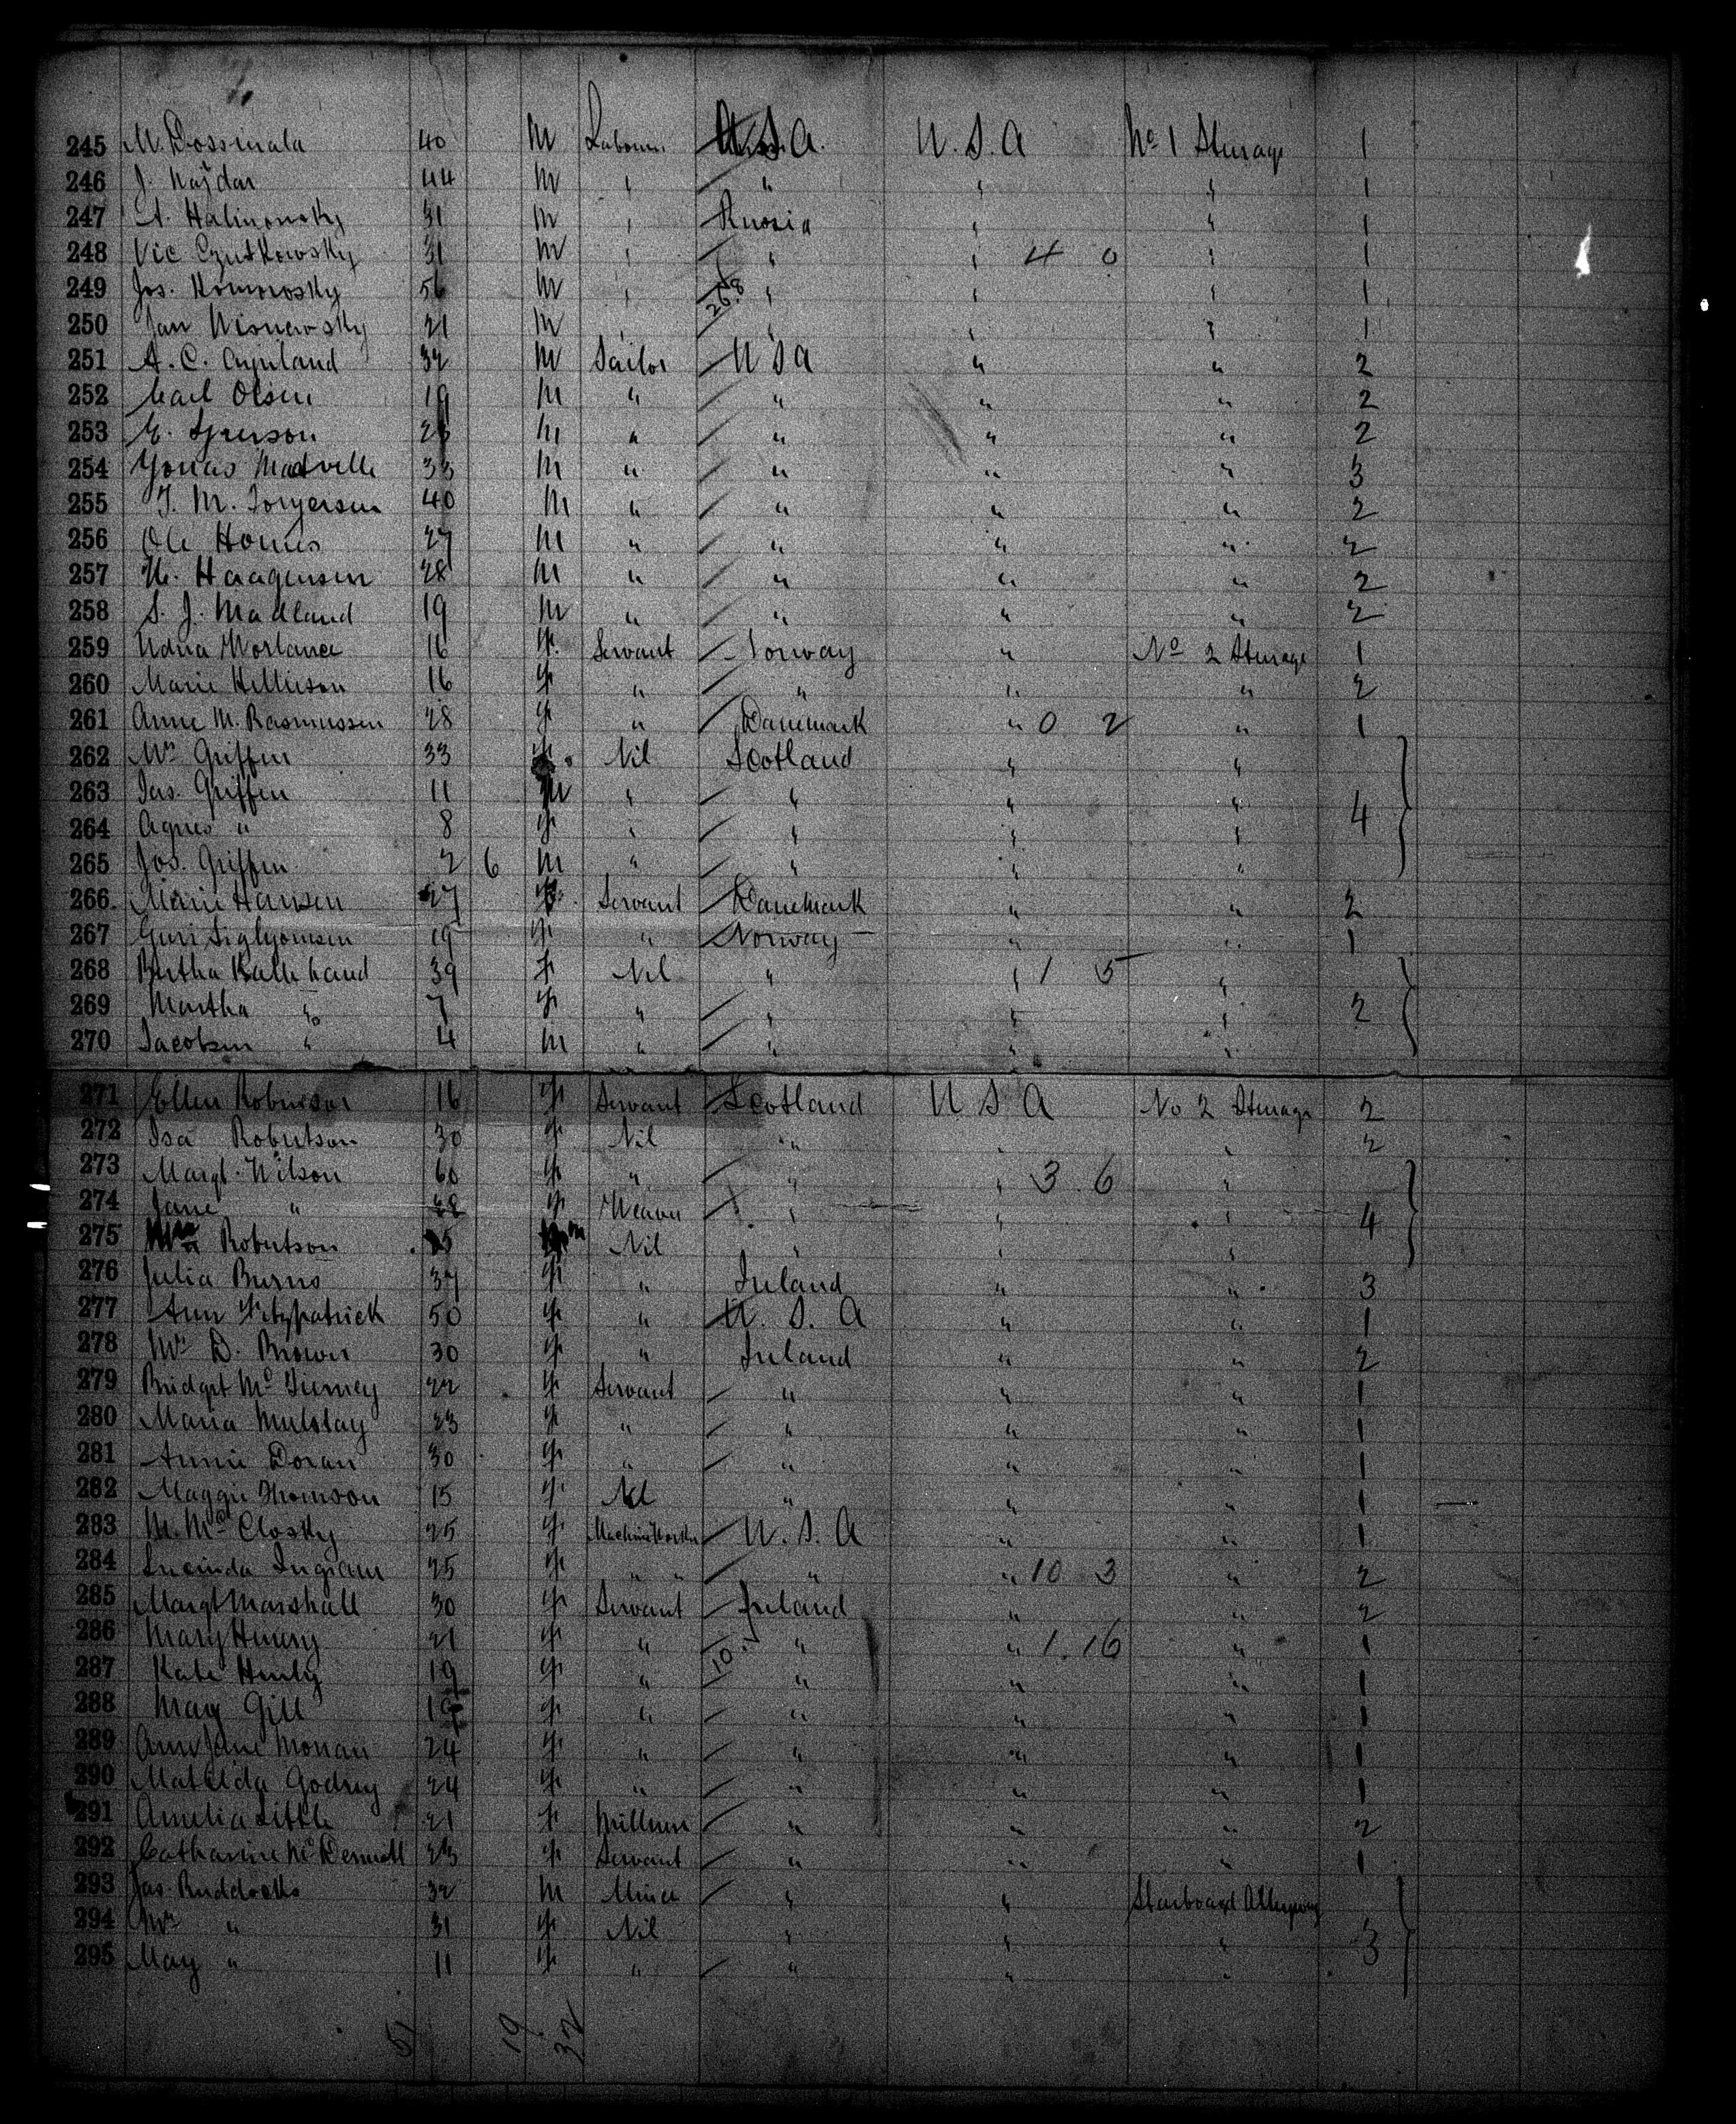 245 M. Dossmala 40 M Labourer U.S.A. U.S.A No 1 Sturage 1
246 J. Najdar 44 M " " " " 1
247 A. Halinonsky 31 M " Russia " " 1
248 Vic 31 M " " " 4 0 " 1
249 Jos. Komorosky 56 M " 268 " " " 1
250 Jan Wisnewsky 21 M " " " " 1
251 A. C. 32 M Sailor U S A " " 2
252 Carl Olsen 19 M " " " " 2
253 M " " " " 2
254 Yonas 33 M " " " " 3
255 T. M. Torgersen 40 M " " " " 2
256 Ole 27 M " " " " 2
257 H. Haagensen 28 M " " " " 2
258 S. J. Madland 19 M " " " " 2
259 16 F. Servant Norway " No 2 Sturage 1
260 Marie 16 F " " " " 2
261 Anne M. Rasmussen 28 F " Danemark " 0 2 " 1
262 Mrs Griffin 33 F. Nil Scotland " "
263 Jas. Griffin 11 M " " " " 4
264 Agnes " 8 F " " " "
265 Jos. Griffin 2 6 M " " " "
266. Marie Hansen 27 F. Servant Danemark " " 2
267 Guri 19 F " Norway " " 1
268 Bertha 39 F Nil " " 1 5 "
269 Martha " 7 F " " " " 2
270 Jacobsen " 4 M " " " "
271 Ellen Robertson 16 F Servant Scotland U S A No 2 Sturage 2
272 Isa Robertson 30 F Nil " " " 2
273 Margt. Wilson 60 F " " " 3 6 "
274 Jane " 28 F Weaver " " " 4
275 Robertson M Nil " " "
276 Julia Burns 37 F " Ireland " " 3
277 Ann Fitzpatrick 50 F " U. S. A " " 1
278 Mrs D. Brown 30 F " Ireland " " 2
279 Bridget Mc Tierney 22 F Servant " " " 1
280 Maria 23 F " " " " 1
281 Annie Doran 30 F " " " " 1
282 Maggie Thomson 15 F Nil " " " 1
283 M. Mc Closky 25 F U. S. A " " 1
284 Lucinda Ingram 25 F " " " " 10 3 " 2
285 Margt Marshall 30 F Servant Ireland " " 2
286 Mary 21 F " 10 " " 1 16 " 1
287 Kate 19 F " " " " 1
288 Mary Gill F " " " " 1
289 Ann Jane Monan 24 F " " " " 1
290 Matilda 24 F " " " " 1
291 Amelia Little 21 F Milliner " " " 2
292 Catharine Mc Dermott 23 F Servant " " " 1
293 Jas. 32 M Miner " " Starboard Alleyway
294 Mrs " 31 F Nil " " " 3
295 May " 11 F " " " "
51 19 32